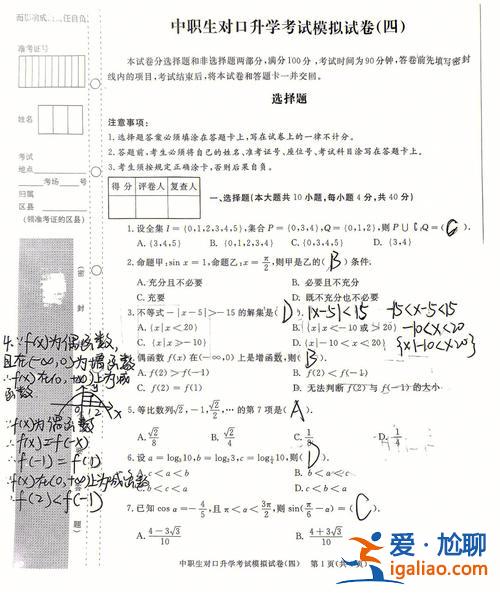 中职生对口升学考试模拟试卷(四)
本试卷分选择题和非选择题两部分,满分100分,考试时间为90分钟,答卷前先填写密封
线内的项目,考试结束后,将本试卷和答题卡一并交回。
选择题
准考证号
姓名
考试
地点
考场 号
归属
区县
(领准考证的区县)
密
封
题
注意事项:
1.选择题答案必须填涂在答题卡上,写在试卷上的一律不计分。
2.答题前,考生必须将自己的姓名、准考证号、座位号、考试科目涂写在答题卡上。
3.考生须按规定正确涂卡,否则后果自负。
得分 评卷人 复查人
一、选择题(本大题共10小题,每小题4分,共40分)
1.设全集I={0,1,2,3,4,5},集合P={0,3,4},Q={0,1,2},则P∪∁ᵢQ=( C ).
A.{3,4,5} B.{0,1,2,3,4} C.{0,3,4,5} D.{3,4}
2.命题甲:sin x=1,命题乙:x=π/2,则甲是乙的( B )条件.
A.充分且不必要 B.必要且不充分
C.充要 D.既不充分也不必要
3.不等式-|x-5|>-15的解集是( D ). |x-5|<15 -15<x-5<15
A.{x|x<20} B.{x|x<-10或x>20} -10<x<20
C.{x|x>-10} D.{x|-10<x<20} {x|-10<x<20}
4.偶函数f(x)在(-∞,0)上是增函数,则( B ).
A.f(2)>f(-1) B.f(2)<f(-1)
C.f(2)=f(1) D.无法判断f(2)与f(-1)的大小
4.∵f(x)为偶函数,
且在(-∞,0)为增函数
∴f(x)在(0,+∞)上为减
函数
0 1 2 x
∵f(x)为偶函数
∴f(x)=f(-x)
∴f(-1)=f(1)
∵f(x)在(0,+∞)上为减函数
∴f(2)<f(-1)
5.等比数列√2,-1,√2/2,…的第7项是( A ).
A.√2/8 B.√2/4 C.1/8 D.1/4
6.设a=log₃10,b=log₂3,c=log 10,则( D ).
A.c<a<b B.b<a<c
C.b<c<a D.c<b<a
7.已知cos α=-4/5,且π<α<3π/2,则sin(π/6-α)=( C ).
A.4-3√3/10 B.4+3√3/10
中职生对口升学考试模拟试卷(四) 第1页(共 页)
爱·尬聊
igaliao.com